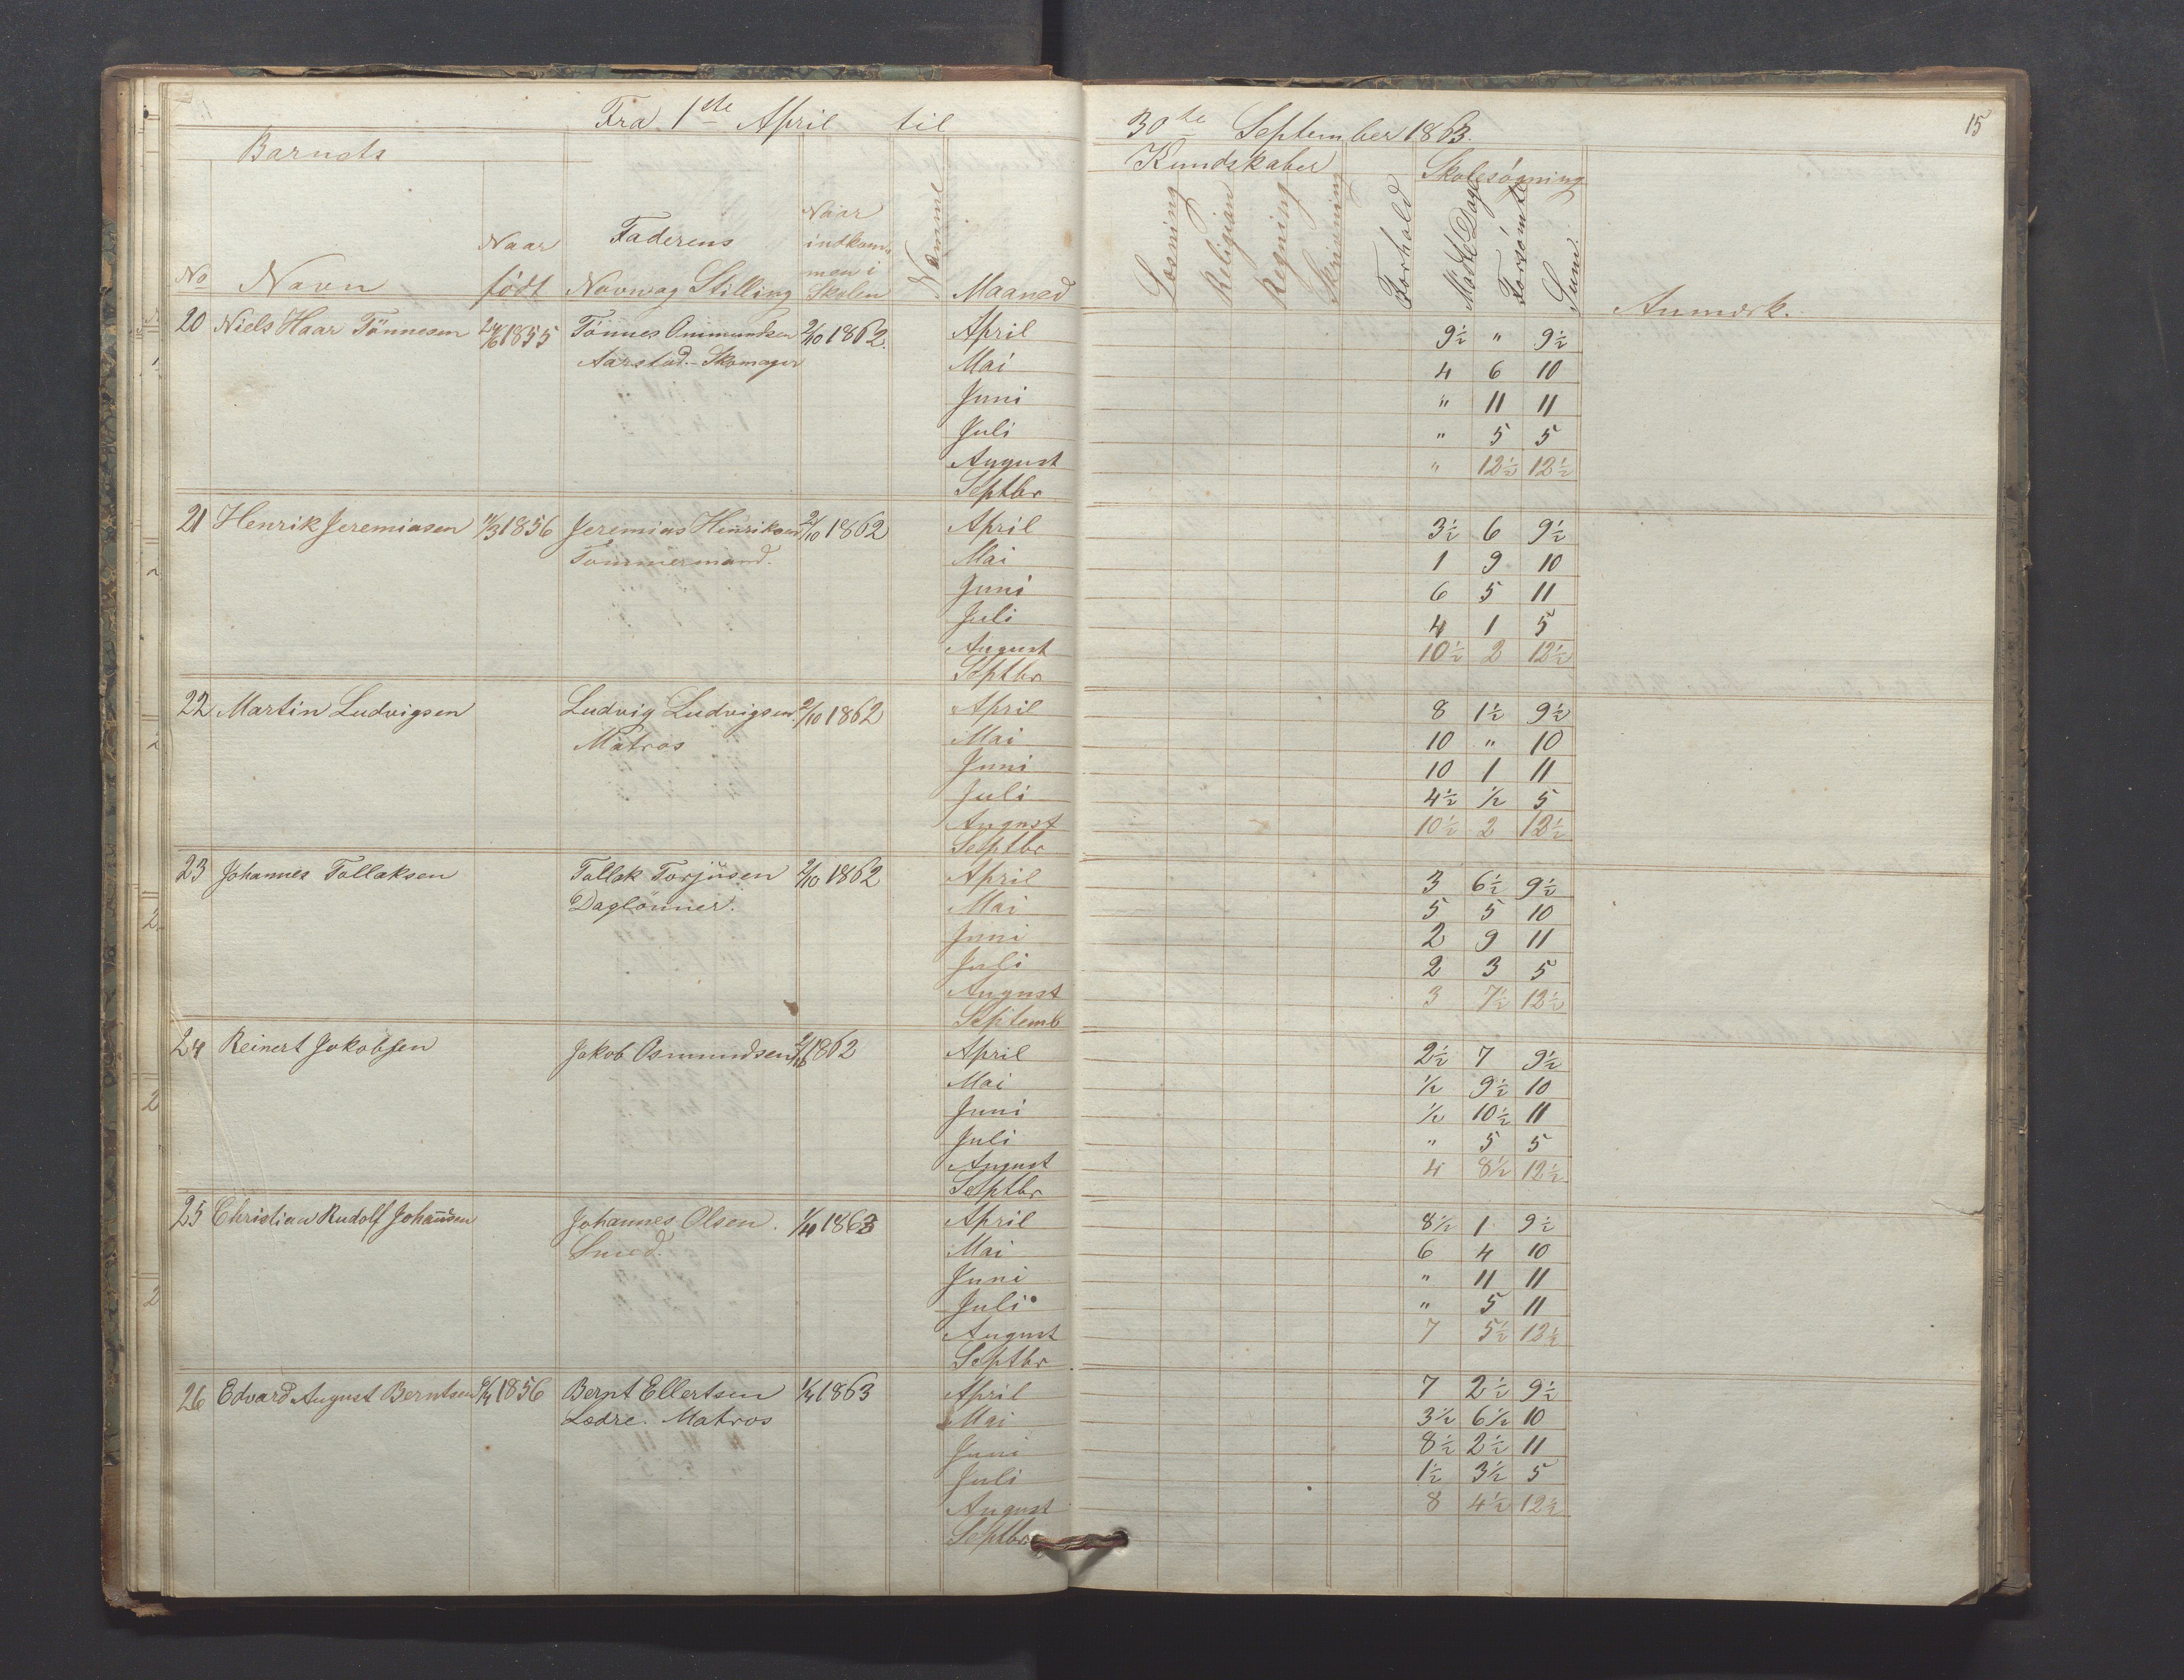 Fra 1ste April til 30te September 1863. 15
Barnets Kundskaber Skolesøgning
No Navn Naar født Faderens Navn og Stilling Naar indkommen i Skolen Nummer Maaned Læsning Religion Regning Skrivning Forhold Mødte Dage Forsømte Sum Anmærk.
20 Niels Haar Tönnesen 1855 Tönnes Ommundsen 2/10 1862. April 9½ " 9½
Aarstad.- Skomager Mai 4 6 10
Juni " 11 11
Juli " 5 5
August " 12½ 12½
Septbr
21 Henrik Jeremiasen 1856 Jeremias Henriksen 2/10 1862 April 3½ 6 9½
Tömmermand. Mai 1 9 10
Juni 6 5 11
Juli 4 1 5
August 10½ 2 12½
Septbr
22 Martin Ludvigsen Ludvig Ludvigsen 2/10 1862 April 8 1½ 9½
Matros Mai 10 " 10
Juni 10 1 11
Juli 4½ ½ 5
August 10½ 2 12½
Septbr
23 Johannes Tollaksen Tollak Torjusen 2/10 1862 April 3 6½ 9½
Daglönner. Mai 5 5 10
Juni 2 9 11
Juli 2 3 5
August 3 7½ 12½
Septemb
24 Reinert Jakobsen Jakob Osmundsen 2/10 1862 April 2½ 7 9½
Mai ½ 9½ 10
Juni ½ 10½ 11
Juli " 5 5
August 4 8½ 12½
Septbr
25 Christian Rudolf Johannsen Johannes Olsen. 1/4 1863 April 8½ 1 9½
Smed. Mai 6 4 10
Juni " 11 11
Juli " 5 11
August 7 5½ 12½
Septbr
26 Edvard August Berntsen 1856 Bernt Ellertsen 1/4 1863 April 7 2½ 9½
Lædre. Matros Mai 3½ 6½ 10
Juni 8½ 2½ 11
Juli 1½ 3½ 5
August 8 4½ 12½
Septbr